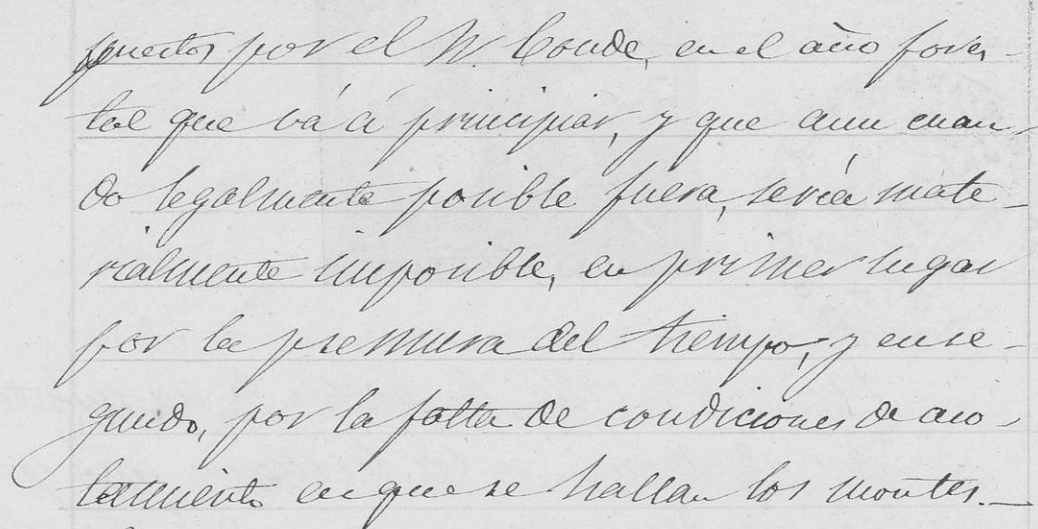 puestos por el Sr. Conde, en el año fores-
tal que vá á principiar, y que aun cuan-
do legalmente posible fuera, sería mate-
rialmente imposible, en primer lugar
por la premura del tiempo, y en se-
guido, por la falta de condiciones de aco-
tamiento en que se hallan los montes.—